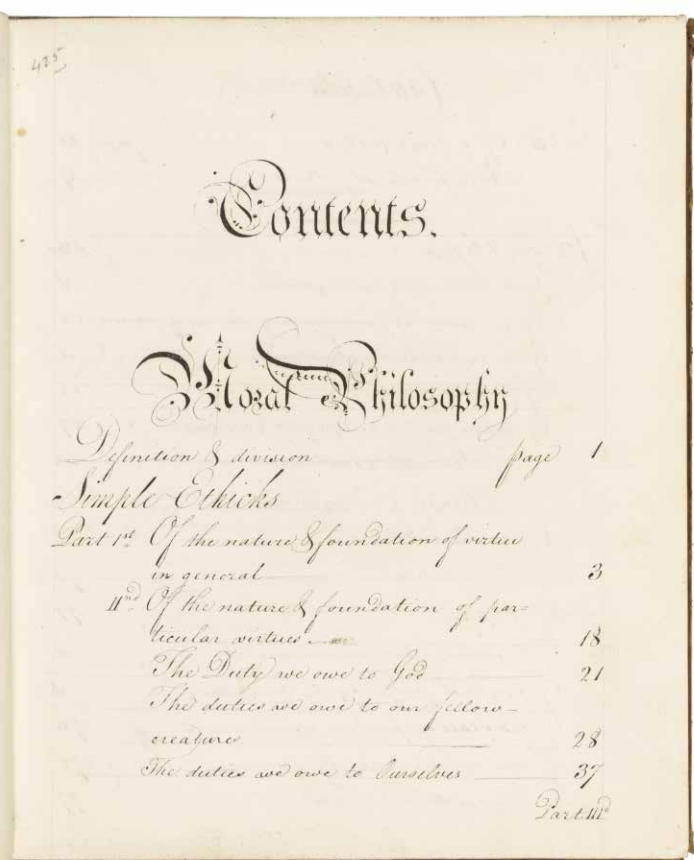 425
Contents.
Moral Philosophy
Definition & division page 1
Simple Ethicks
Part 1st Of the nature & foundation of virtue
in general 3
IInd Of the nature & foundation of par=
ticular virtues 18
The Duty we owe to God 21
The duties we owe to our fellow-
creatures 28
The duties we owe to Ourselves 37
Part IIId